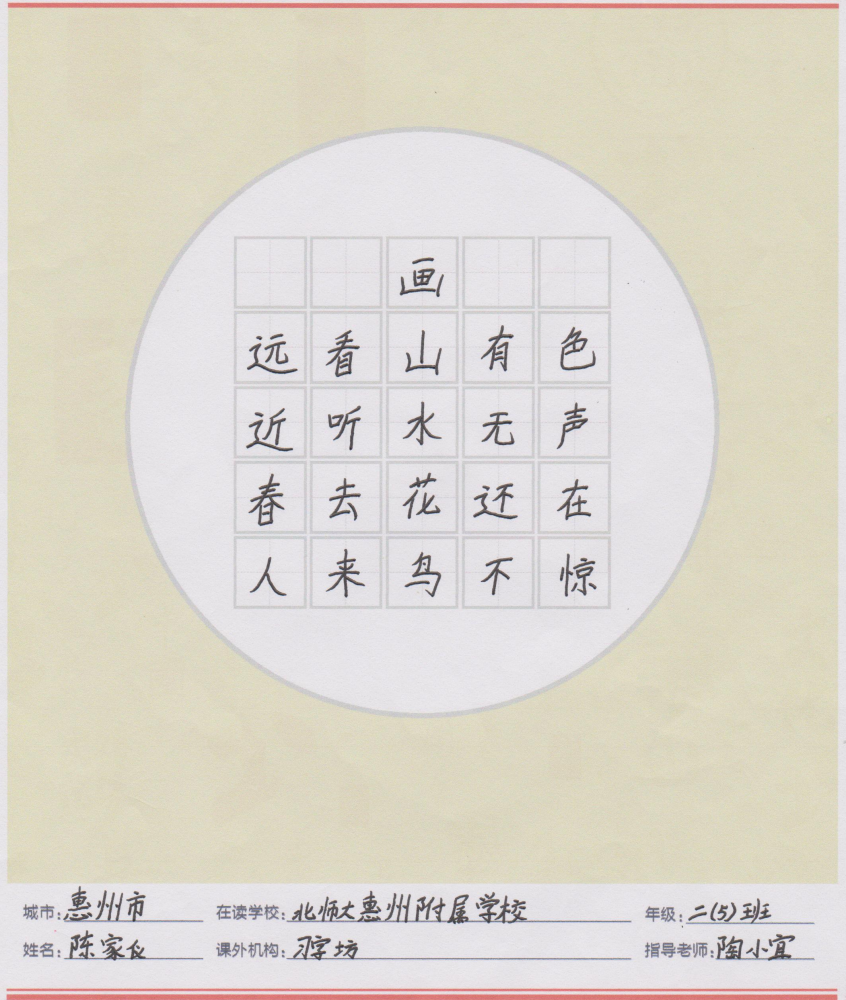 画
远看山有色
近听水无声
春去花还在
人来鸟不惊
城市:惠州市 在读学校:北师大惠州附属学校 年级:二(5)班
姓名:陈家仪 课外机构:习字坊 指导老师:陶小宜